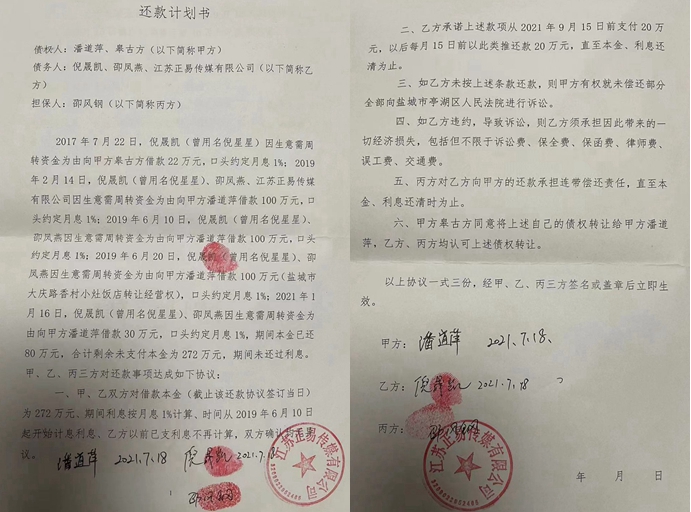 还款计划书
债权人：潘道萍、皋古方（以下简称甲方）
债务人：倪晟凯、邵凤燕、江苏正易传媒有限公司（以下简称乙
方）
担保人：邵凤钢（以下简称丙方）
2017年7月22日，倪晟凯（曾用名倪星星）因生意需周
转资金为由向甲方皋古方借款22万元，口头约定月息1%；2019
年2月14日，倪晟凯（曾用名倪星星）、邵凤燕、江苏正易传媒
有限公司因生意需周转资金为由向甲方潘道萍借款100万元，口
头约定月息1%；2019年6月10日，倪晟凯（曾用名倪星星）、
邵凤燕因生意需周转资金为由向甲方潘道萍借款100万元，口头
约定月息1%；2019年6月20日，倪晟凯（曾用名倪星星）、邵
凤燕因生意需周转资金为由向甲方潘道萍借款100万元（盐城市
大庆路香村小灶饭店转让经营权），口头约定月息1%；2021年1
月16日，倪晟凯（曾用名倪星星）、邵凤燕因生意需周转资金为
由向甲方潘道萍借款30万元，口头约定月息1%，期间本金已还
80万元，合计剩余未支付本金为272万元，期间未还过利息。
甲、乙、丙三方对还款事项达成如下协议：
一、甲、乙双方对借款本金（截止该还款协议签订当日）
为272万元、期间利息按月息1%计算、时间从2019年6月10日
起开始计息利息，乙方以前已支利息不再计算，双方确认
议。
潘道萍 2021.7.18 倪晟凯 2021.7.18
江苏正易传媒有限公司
1
二、乙方承诺上述款项从2021年9月15日前支付20万
元，以后每月15日前以此类推还款20万元，直至本金、利息还
清为止。
三、如乙方未按上述条款还款，则甲方有权就未偿还部分
全部向盐城市亭湖区人民法院进行诉讼。
四、如乙方违约，导致诉讼，则乙方须承担因此带来的一
切经济损失，包括但不限于诉讼费、保全费、保函费、律师费、
误工费、交通费。
五、丙方对乙方向甲方的还款承担连带偿还责任，直至本
金、利息还清时为止。
六、甲方皋古方同意将上述自己的债权转让给甲方潘道
萍，乙方、丙方均认可上述债权转让。
以上协议一式三份，经甲、乙、丙三方签名或盖章后立即生
效。
甲方：潘道萍 2021.7.18.
乙方：倪晟凯 2021.7.18
丙方：
江苏正易传媒有限公司
年 月 日